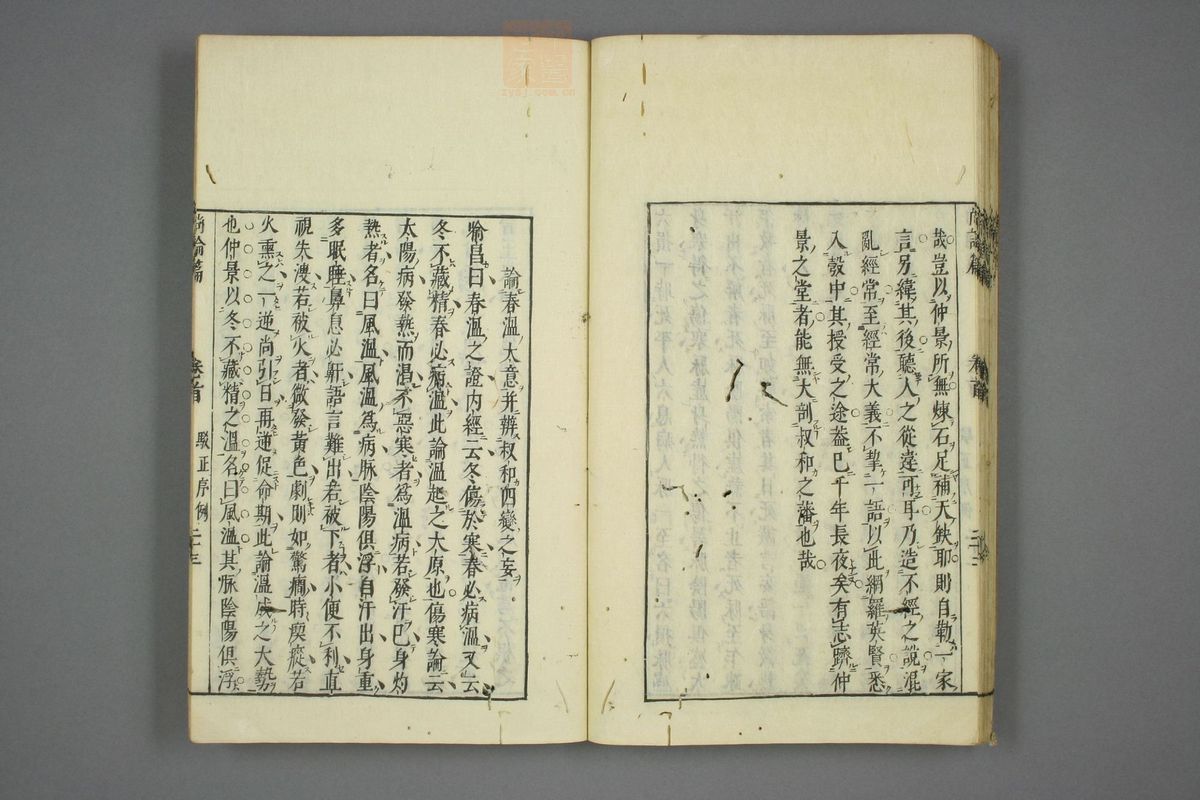 尚論篇 卷首 二十二
哉豈以仲景所無煉石足補天缺耶則自勒一家
言另緯其後聽人之從違可耳乃造不經之說混
亂經常至經常大義不挈一語以此網羅英賢悉
入彀中其授受之途葢已千年長夜矣有志躋仲
景之堂者能無大剖叔和之藩也哉
論春溫大意并辨叔和四變之妄
喻昌曰春溫之證內經云冬傷於寒春必病溫又云
冬不藏精春必病溫此論溫起之大原也傷寒論云
太陽病發熱而渴不惡寒者為溫病若發汗已身灼
熱者名曰風溫風溫為病脉陰陽俱浮自汗出身重
多眠睡鼻息必鼾語言難出若被下者小便不利直
視失溲若被火者微發黃色劇則如驚癇時瘈瘲若
火熏之一逆尚引日再逆促命期此論溫成之大勢
也仲景以冬不藏精之溫名曰風溫其脉陰陽俱浮
尚論篇 卷首 駁正序例 二十三
zysj.com.cn